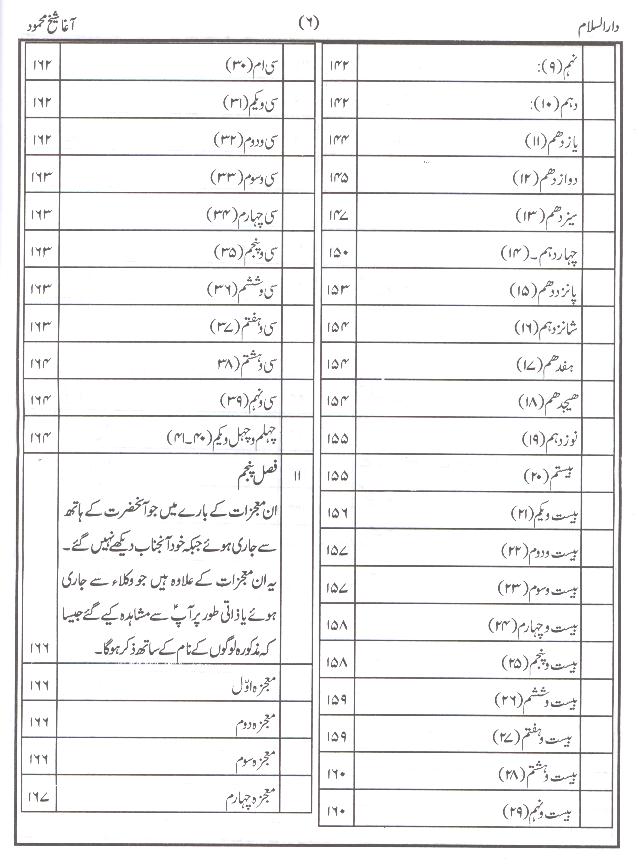 دارالسلام (۶) آغا شیخ محمود
نہم (۹): ۱۴۲
دہم (۱۰): ۱۴۲
یازدھم (۱۱) ۱۴۴
دوازدھم (۱۲) ۱۴۵
سیزدھم (۱۳) ۱۴۷
چہاردہم۔ (۱۴) ۱۵۰
پانزدھم (۱۵) ۱۵۳
شانزدہم (۱۶) ۱۵۴
ہفدھم (۱۷) ۱۵۴
ھیجدھم (۱۸) ۱۵۴
نوزدہم (۱۹) ۱۵۵
بیستم (۲۰) ۱۵۵
بیست ویکم (۲۱) ۱۵۶
بیست ودوم (۲۲) ۱۵۷
بیست وسوم (۲۳) ۱۵۷
بیست وچہارم (۲۴) ۱۵۸
بیست وپنجم (۲۵) ۱۵۸
بیست وششم (۲۶) ۱۵۹
بیست وہفتم (۲۷) ۱۵۹
بیست وہشتم (۲۸) ۱۶۰
بیست ونہم (۲۹) ۱۶۰
سی ام (۳۰) ۱۶۲
سی ویکم (۳۱) ۱۶۲
سی ودوم (۳۲) ۱۶۲
سی وسوم (۳۳) ۱۶۳
سی چہارم (۳۴) ۱۶۳
سی وپنجم (۳۵) ۱۶۳
سی وششم (۳۶) ۱۶۳
سی وہفتم (۳۷) ۱۶۳
سی وہشتم (۳۸ ۱۶۴
سی ونہم (۳۹) ۱۶۴
چہلم وچہل ویکم (۴۰۔۴۱) ۱۶۴
۱۱ فصل پنجم
ان معجزات کے بارے میں جو آنحضرت کے ہاتھ
سے جاری ہوئے جبکہ خود آنجناب دیکھے نہیں گئے۔
یہ ان معجزات کے علاوہ ہیں جو وکلاء سے جاری
ہوئے یا ذاتی طور پر آپؑ سے مشاہدہ کیے گئے جیسا
کہ مذکورہ لوگوں کے نام کے ساتھ ذکر ہوگا۔ ۱۶۶
معجزہ اوّل ۱۶۶
معجزہ دوم ۱۶۶
معجزہ سوم ۱۶۶
معجزہ چہارم ۱۶۷